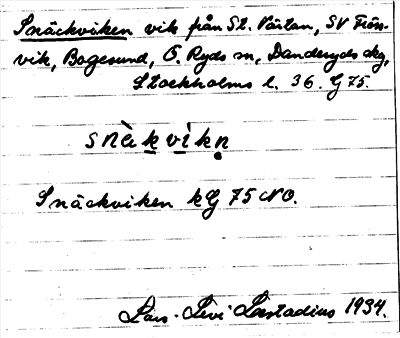 Snäckviken vik från St. Värtan, SV Frös-
vik, Bogesund, Ö. Ryds sn, Danderyds skg,
Stockholms l. 36. G 75.
snàkvìkn̥
Snäckviken kG 75 NO.
Lars-Levi Læstadius 1934.